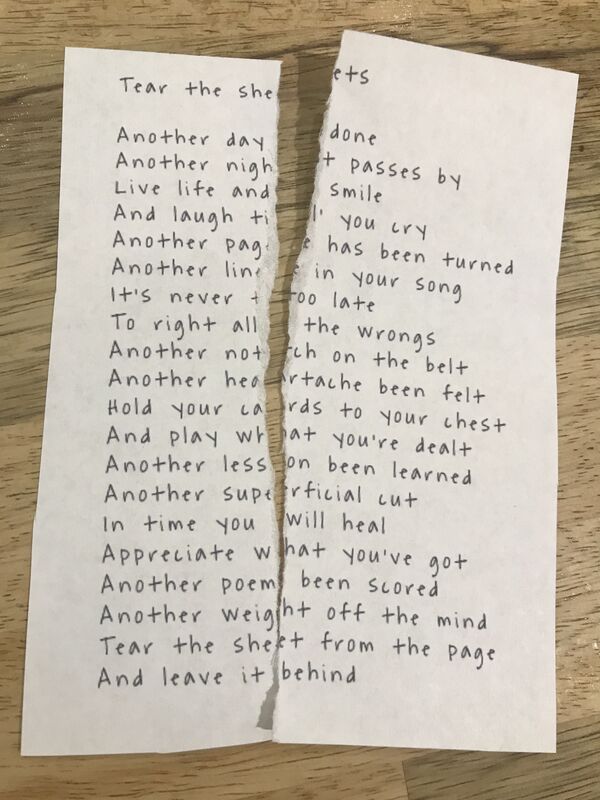 Tear the sheets
Another day done
Another night passes by
Live life and smile
And laugh til' you cry
Another page has been turned
Another line in your song
It's never too late
To right all the wrongs
Another notch on the belt
Another heartache been felt
Hold your cards to your chest
And play what you're dealt
Another lesson been learned
Another superficial cut
In time you will heal
Appreciate what you've got
Another poem been scored
Another weight off the mind
Tear the sheet from the page
And leave it behind